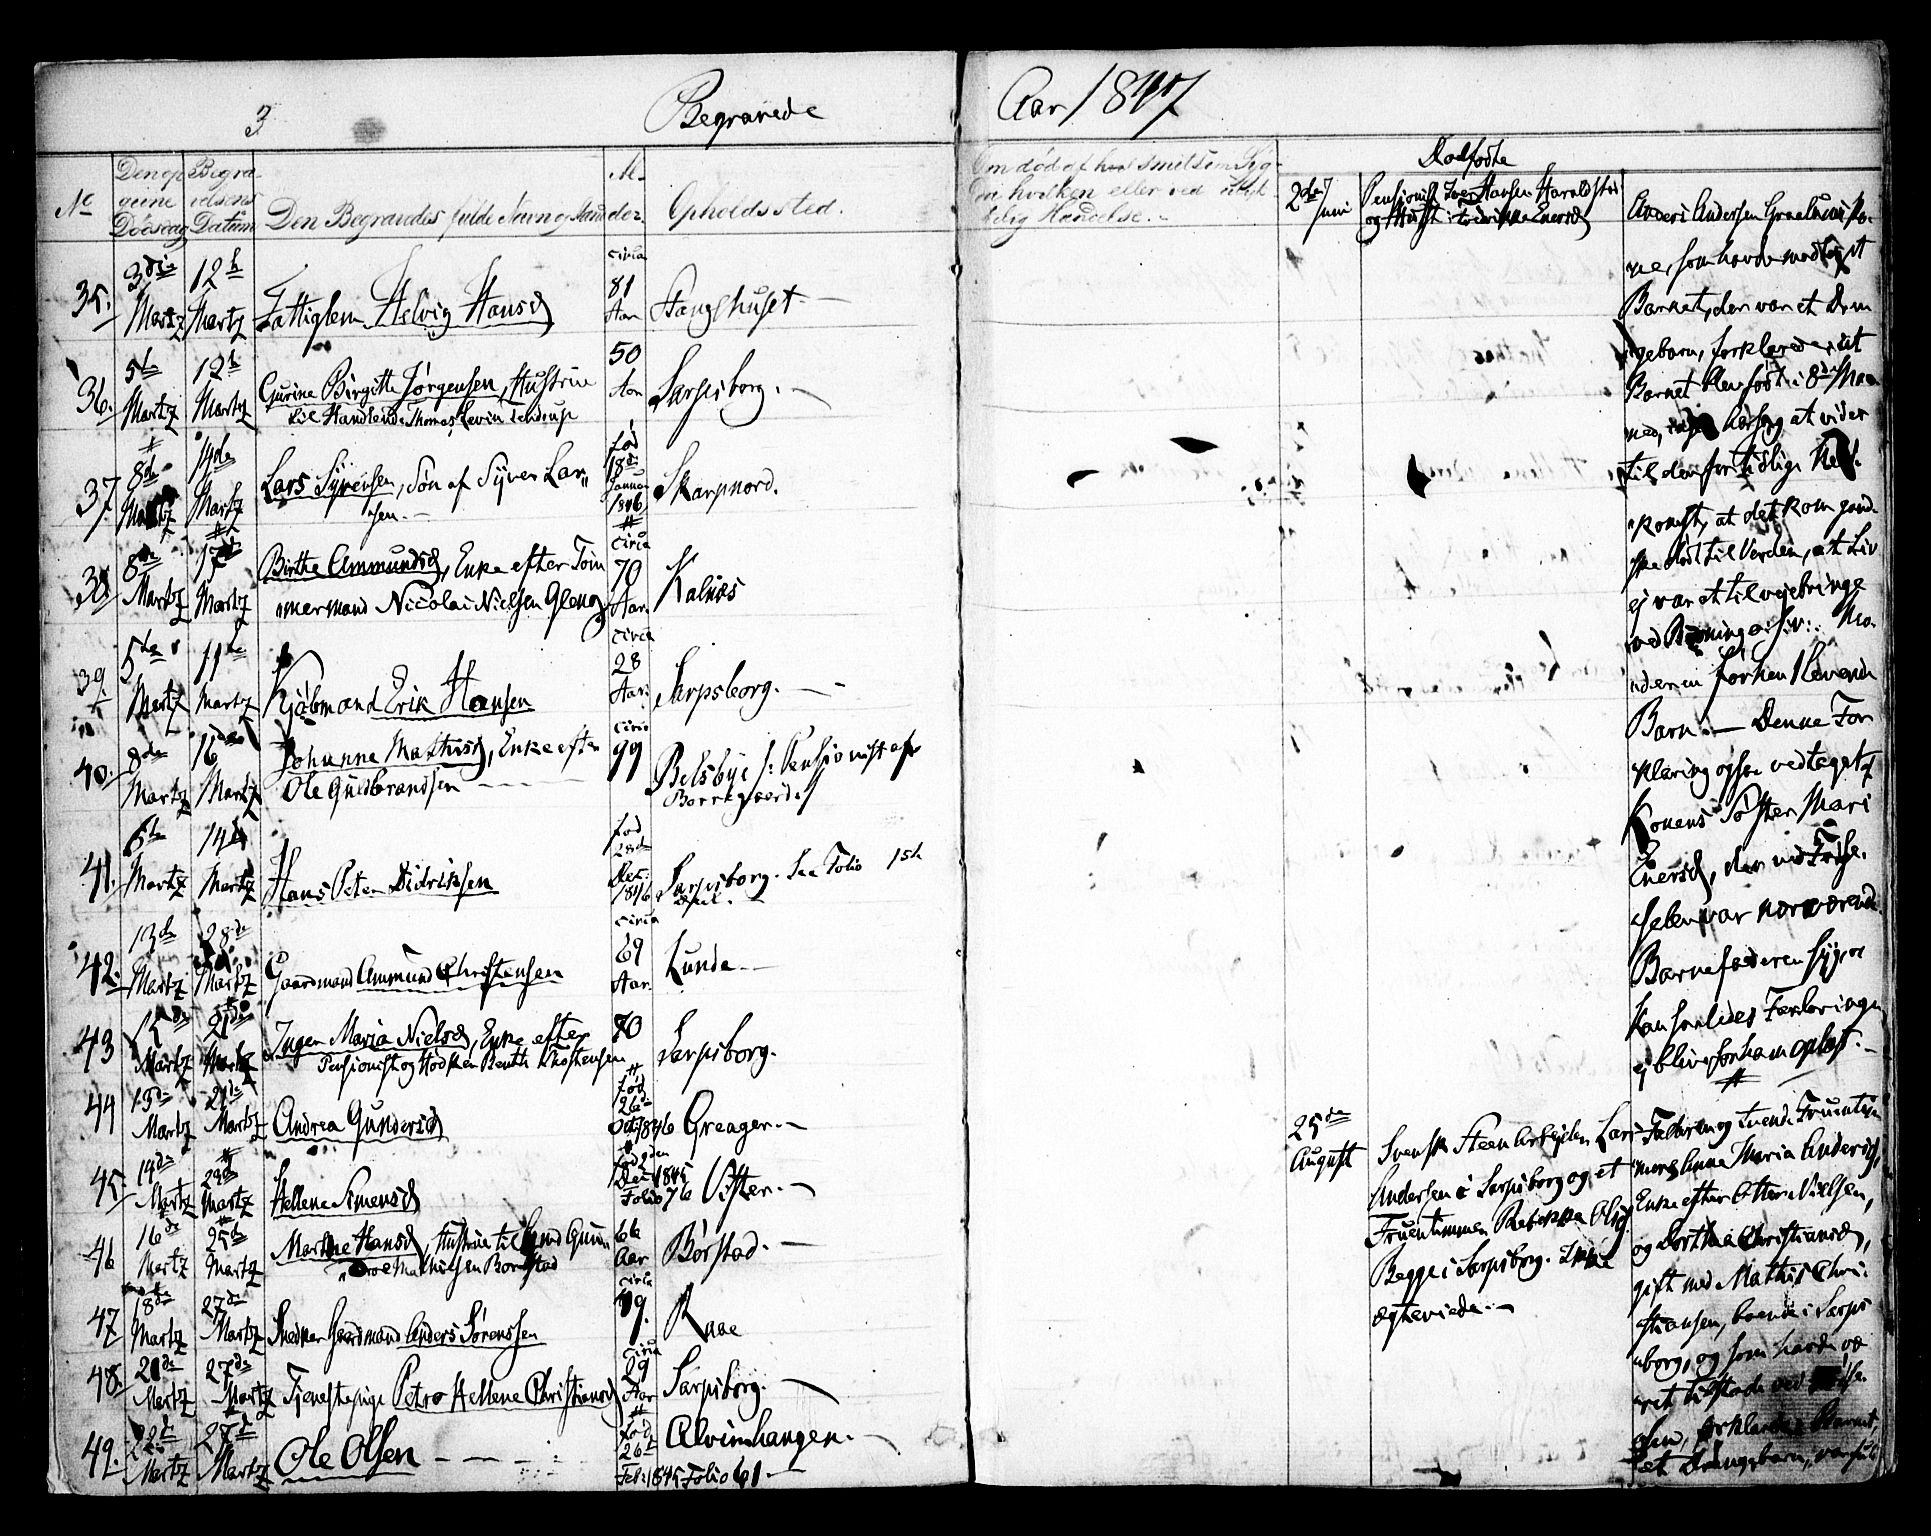 3 Begravede
Aar 1847
No
Den op
givne
Dødsdag
Begra
velsens
Datum
Den Begravedes fulde Navn og Stand
Al-
der.
Opholdssted.
35. 3die Martz 12te Martz Fattiglem Helvig Hansd circa 81 Aar Stanghuset.
36. 5te Martz 12te Martz Gurine Birgitte Jørgensen, Hustrue
til Handlende Thomas Levin
50 Aar Sarpsborg.
37. 8de Martz 14de Martz Lars Syversen, Søn af Syver Lar-
sen.
fød 18de Januar 1846 Skarpnord.
38 8de Martz 17de Martz Birthe Ammundsd, Enke efter Tøm
mermand Nicolai Nielsen Gleng
circa 70 Aar Kalnæs
39. 5te Martz 11te Martz Kjøbmand Erik Hansen circa 28 Aar. Sarpsborg.
40. 8de Martz 16de Martz Johanne Mathisd, Enke efter
Ole Guldbrandsen
circa 99 Belsbye /: Pensionist af
Borregaard:/
41. 6te Martz 14de Martz Hans Peter Didriksen fød 28de Dec: 1846 Sarpsborg. See Folio 15de
April.
42. 13de Martz 28de Martz Gaardmand Ammund Christensen circa 69 Aar. Lunde
43 15de Martz 21de Martz Inger Maria Nielsd, Enke efter
Pensionist og
80 Sarpsborg.
44 13de Martz 21de Martz Andrea Gundersd fød 26de Oct 1846 Greager.
45. 14de Martz Martz Hellene Simensd fød Dec 1845 Folio 76 Vister.
46 16de Martz 25de Martz Marthe Hansd, Hustrue til
66 Aar Børstad.
47 18de Martz 27de Martz Snedker Gaardmand Anders Sørenssen circa 79. Raae
48. 20de Martz 27de Martz Tjenestepige Petra Hellene Christiansd circa 29 Aar Sarpsborg.
49. 22de Martz 27de Martz Ole Olsen fød 26de Feb: 1845 Folio 61 Alvimhaugen.
Om død af hvis smetsom Syg-
dom hvilken eller ved
lig Hændelse.
Dødfødte
2den Juni
Pensionist Iver Hansen
og Hustr: Fredrikke Enersd
Anders Andersen Ko-
ne som havde modtaget
Barnet, der var et Dren
gebarn, forklarede, at
Barnet blev født i 8de Maa
ned, herfor at vider
til den fortidlige Ned-
komst, at det kom gand-
ske dødt til Verden, at Liv
ej var at tilvejebringe
ved
Barn. — Denne For
klaring ogsaa vedtaget af
Konens Søster Mari
Enersd, der ved Fødse-
selen var nærværende.
Barnefaderen syg
kan saaledes Forklaringen
ej blive for ham oplæst.
25de
August
Svensk Steenarbejder Lars
Andersen i Sarpsborg og et
Fruentimmer Rebekka Olsd
Begge i Sarpsborg. Ikke
ægteviede.
Faderen og tvende Fruentim
mere Anne Maria Andersd,
Enke efter Otter Nielsen,
og Dorthea Christiansd,
gift med Mathis Chri-
stiansen, boende i Sarps
borg, og som havde væ
ret tilstæde ved Fødse-
len, forklarede, Barnet,
et Drengebarn, var